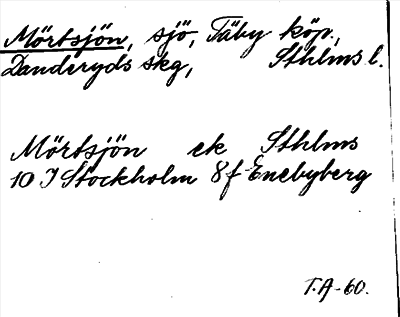 Mörtsjön, sjö, Täby köp.,
Danderyds skg, Sthlms l.
Mörtsjön ek Sthlms
10 I Stockholm 8f Enebyberg
T.A-60.